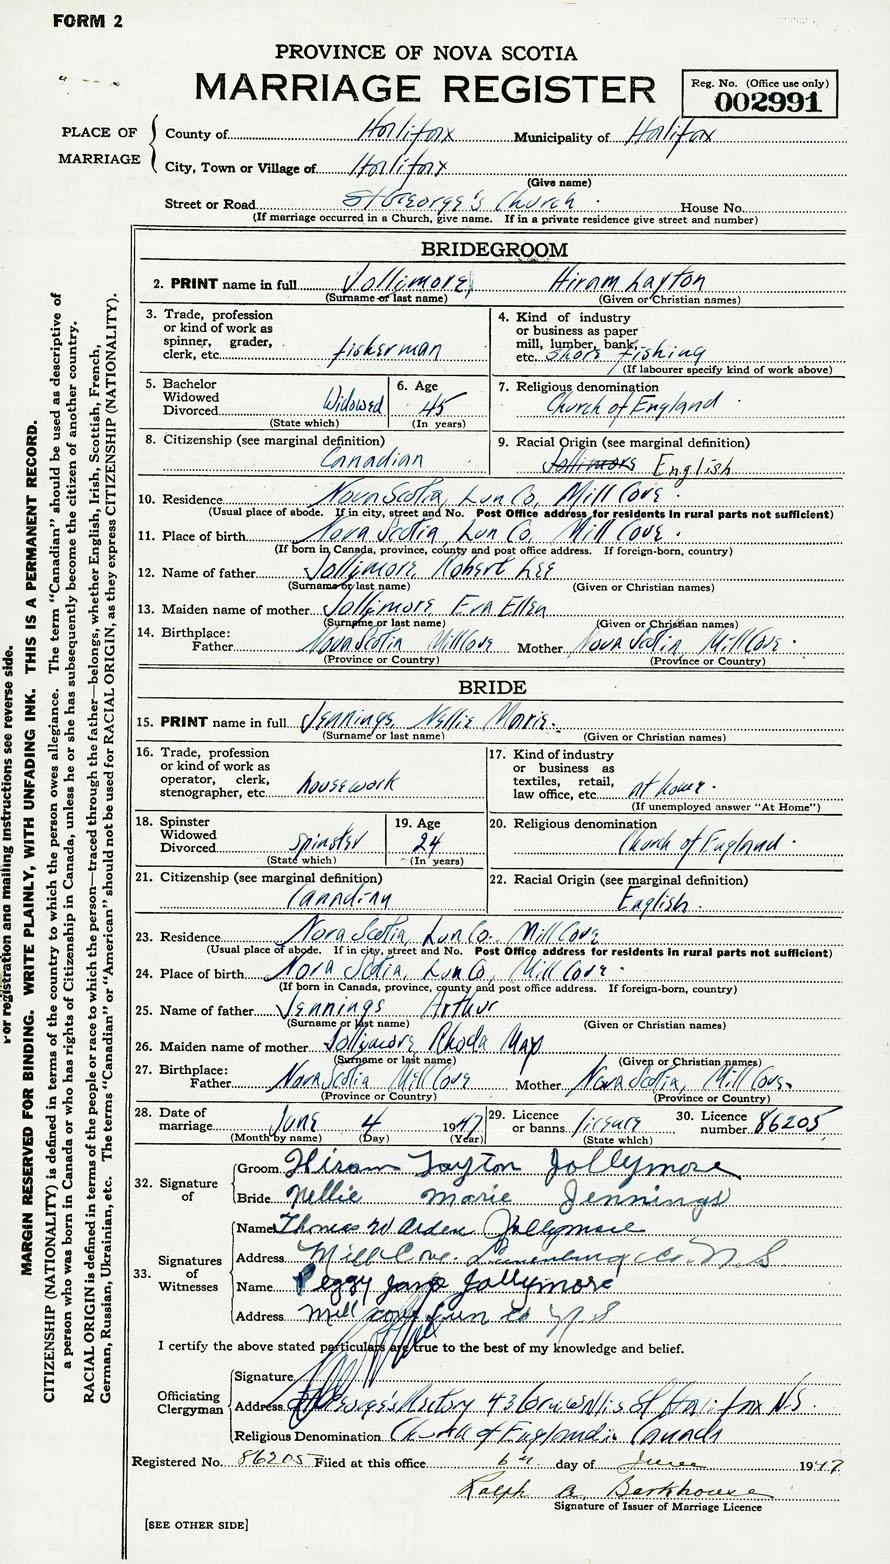 FORM 2
PROVINCE OF NOVA SCOTIA
MARRIAGE REGISTER
Reg. No. (Office use only)
002991
PLACE OF MARRIAGE
County of Halifax Municipality of Halifax
City, Town or Village of Halifax
(Give name)
Street or Road St George's Church House No.
(If marriage occurred in a Church, give name. If in a private residence give street and number)
BRIDEGROOM
2. PRINT name in full Jollimore, Hiram Layton
(Surname or last name) (Given or Christian names)
3. Trade, profession or kind of work as spinner, grader, clerk, etc. fisherman
4. Kind of industry or business as paper mill, lumber, bank, etc. Shore Fishing
(If labourer specify kind of work above)
5. Bachelor Widowed Divorced Widowed
(State which)
6. Age 45
(In years)
7. Religious denomination
Church of England
8. Citizenship (see marginal definition)
Canadian
9. Racial Origin (see marginal definition)
Jollimore English
10. Residence Nova Scotia, Lun Co, Mill Cove
(Usual place of abode. If in city, street and No. Post Office address for residents in rural parts not sufficient)
11. Place of birth Nova Scotia, Lun Co, Mill Cove
(If born in Canada, province, county and post office address. If foreign-born, country)
12. Name of father Jollymore, Robert Lee
(Surname or last name) (Given or Christian names)
13. Maiden name of mother Jollymore Eva Ellen
(Surname or last name) (Given or Christian names)
14. Birthplace:
Father Nova Scotia Mill Cove Mother Nova Scotia Mill Cove
(Province or Country) (Province or Country)
BRIDE
15. PRINT name in full Jennings Nellie Marie
(Surname or last name) (Given or Christian names)
16. Trade, profession or kind of work as operator, clerk, stenographer, etc. housework
17. Kind of industry or business as textiles, retail, law office, etc. at home
(If unemployed answer "At Home")
18. Spinster Widowed Divorced Spinster
(State which)
19. Age 24
(In years)
20. Religious denomination
Church of England
21. Citizenship (see marginal definition)
Canadian
22. Racial Origin (see marginal definition)
English
23. Residence Nova Scotia, Lun Co. Mill Cove
(Usual place of abode. If in city, street and No. Post Office address for residents in rural parts not sufficient)
24. Place of birth Nova Scotia, Lun Co, Mill Cove
(If born in Canada, province, county and post office address. If foreign-born, country)
25. Name of father Jennings Arthur
(Surname or last name) (Given or Christian names)
26. Maiden name of mother Jollymore Rhoda May
(Surname or last name) (Given or Christian names)
27. Birthplace:
Father Nova Scotia Mill Cove Mother Nova Scotia, Mill Cove
(Province or Country) (Province or Country)
28. Date of marriage June 4 1947
(Month by name) (Day) (Year)
29. Licence or banns license
(State which)
30. Licence number 86205
32. Signature of
Groom Hiram Layton Jollymore
Bride Nellie Marie Jennings
33. Signatures of Witnesses
Name Thomas W Arden Jollymore
Address Mill Cove. Lunenburg Co. N S
Name Peggy Jane Jollymore
Address Mill cove Lun Co N S
I certify the above stated particulars are true to the best of my knowledge and belief.
Officiating Clergyman
Signature
Address St George's Rectory 43 Cornwallis St Halifax N.S.
Religious Denomination Church of England in Canada
Registered No. 86205 Filed at this office 6th day of June 1947
Ralph A. Barkhouse
Signature of Issuer of Marriage Licence
[SEE OTHER SIDE]
For registration and mailing instructions see reverse side.
MARGIN RESERVED FOR BINDING. WRITE PLAINLY, WITH UNFADING INK. THIS IS A PERMANENT RECORD.
CITIZENSHIP (NATIONALITY) is defined in terms of the country to which the person owes allegiance. The term "Canadian" should be used as descriptive of
a person who was born in Canada or who has rights of Citizenship in Canada, unless he or she has subsequently become the citizen of another country.
RACIAL ORIGIN is defined in terms of the people or race to which the person—traced through the father—belongs, whether English, Irish, Scottish, French,
German, Russian, Ukrainian, etc. The terms "Canadian" or "American" should not be used for RACIAL ORIGIN, as they express CITIZENSHIP (NATIONALITY).